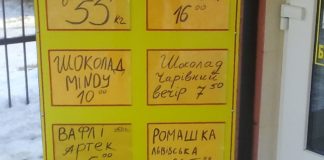 55 кг
16 00
ШОКОЛАД
MINDY
10 00
Шоколад
Чарівний
вечір 7 50
ВАФЛІ
Артек
РОМАШКА
ЛЬВІВСЬКА